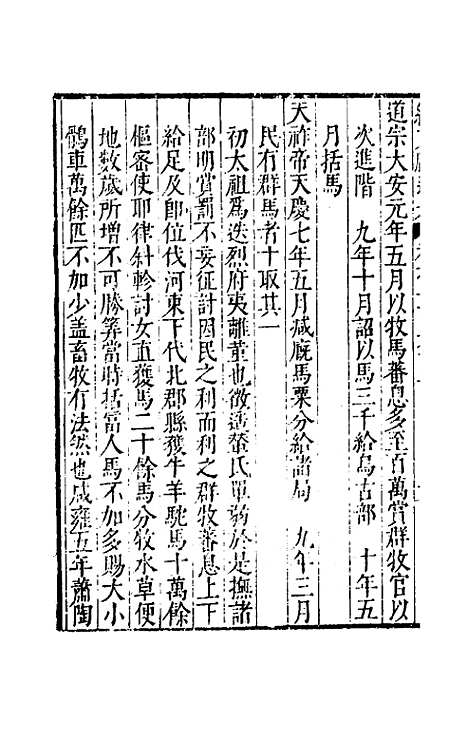 道宗大安元年五月以牧馬蕃息多至百萬賞群牧官以
次進階　九年十月詔以馬三千給烏古部　十年五
月括馬
天祚帝天慶七年五月減廐馬粟分給諸局　九年三月
民有群馬者十取其一
初太祖爲迭烈府夷離堇也徴遥輦氏單弱於是撫諸
部明賞罰不妄征討因民之利而利之群牧蕃息上下
給足及卽位伐河東下代北郡縣獲牛羊駝馬十萬餘
樞密使耶律斜軫討女直獲馬二十餘馬分牧水草便
地數歲所增不可勝筭當時括富人馬不加多賜大小
鶻車萬餘匹不加少盖畜牧有法然也咸雍五年蕭陶